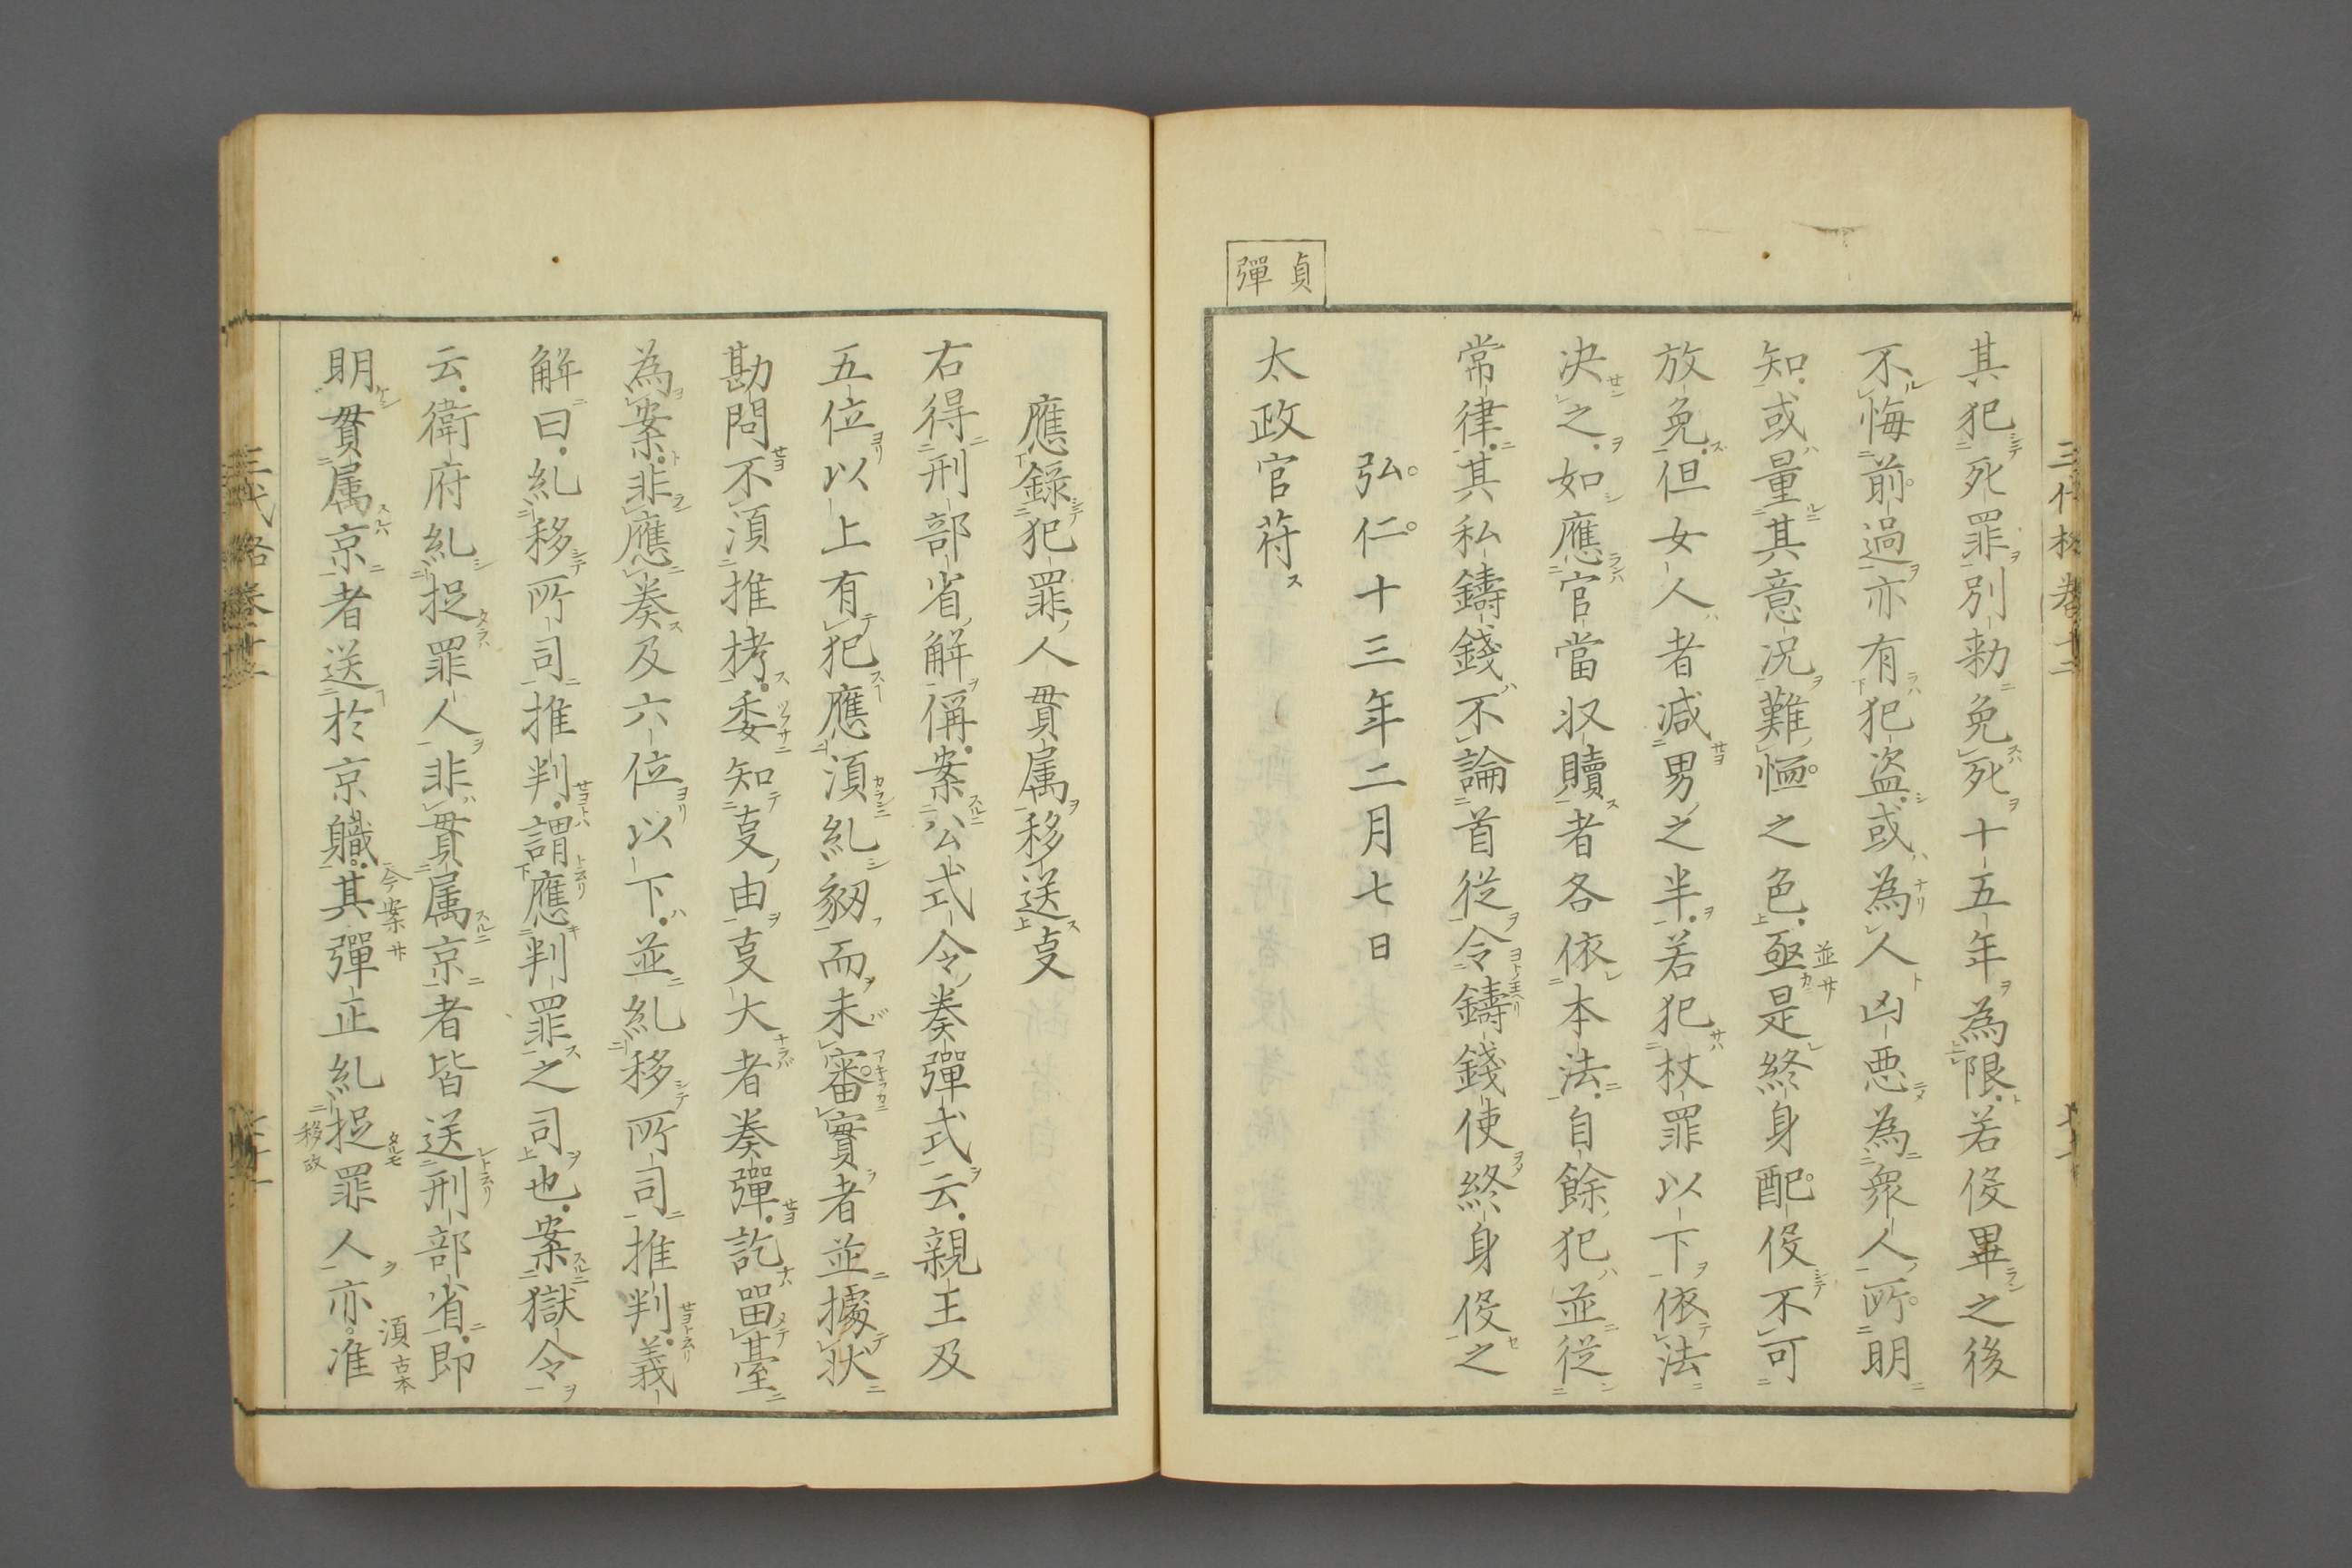 其犯死罪別勅免死十五年為限若役畢之後
不悔前過亦有犯盗或為人凶悪為衆人所明
知或量其意况難恤之色亟是終身配役不可
放免但女人者减男之半若犯杖罪以下依法
决之如應官當収贖者各依本法自餘犯並從
常律其私鑄錢不論首從令鑄錢使終身役之
弘仁十三年二月七日
貞彈
太政官苻
應錄犯罪人貫属移送事
右得刑部省解偁案公式令奏彈式云親王及
五位以上有犯應湏糺劾而未審實者並據状
勘問不湏推拷委知事由事大者奏彈訖留臺
為案非應奏及六位以下並糺移所司推判義
解曰糺移所司推判謂應判罪之司也案獄令
云衛府糺捉罪人非貫属京者皆送刑部省即
明貫属京者送於京軄其彈正糺捉罪人亦准
今案
移故
湏古本